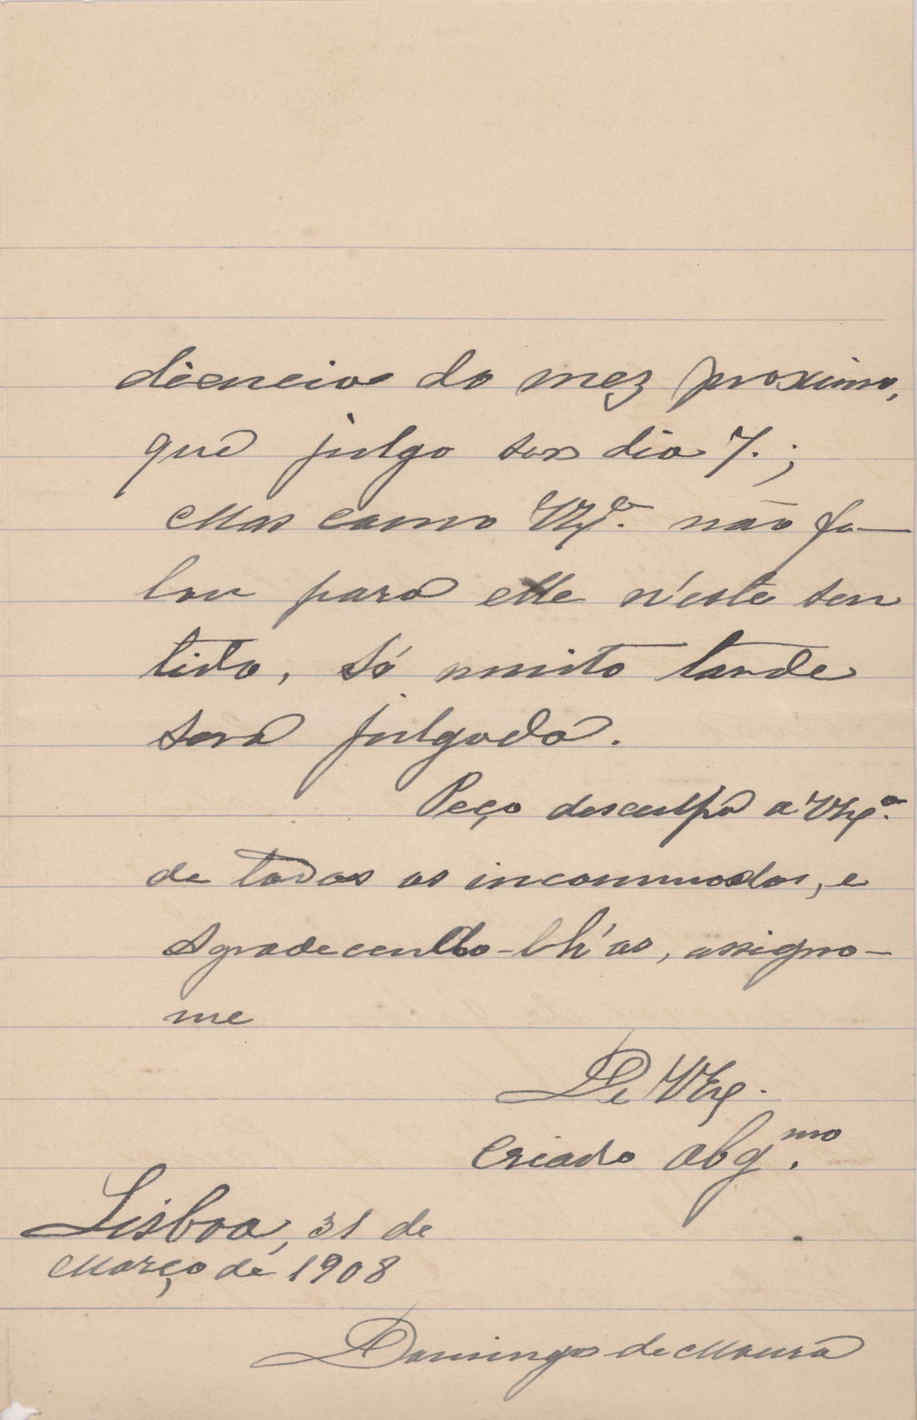 diencia do mez proximo,
que julgo ser dia 7.;
Mas como VEx.ª não fa-
lou para elle n'este sen
tido, só muito tarde
será julgado.
Peço desculpa a VEx.ª
de todos os incommodos, e
agradecendo-lh'os, assigno-
me
De VEx.
Criado obg.mo
Lisboa, 31 de
Março de 1908
Domingos de Moura